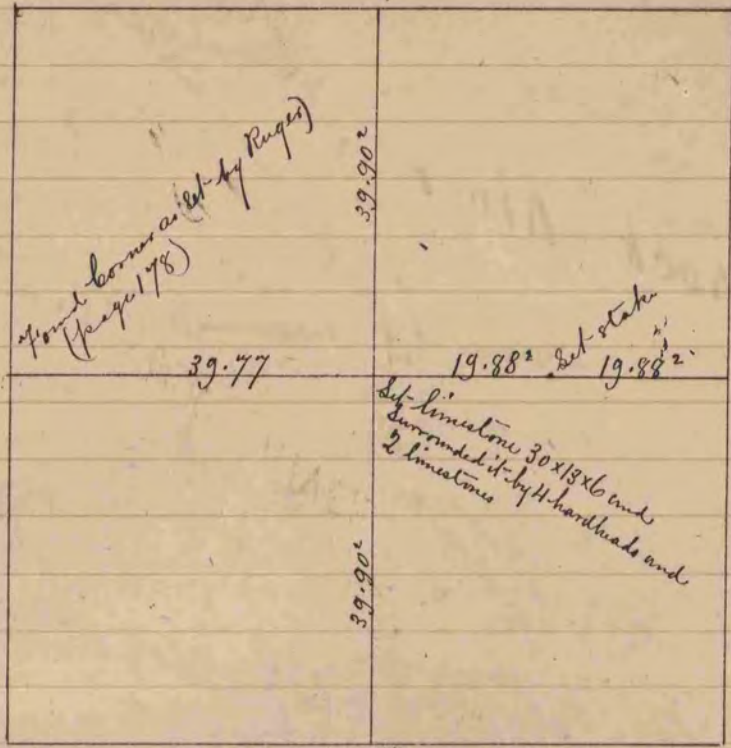 Found Corner as (set by Ruger)
(page 178)
39.90²
39.77
19.88²
Set stake
19.88²
Set limestone 30x13x6 and
Surrounded it by 4 hardheads and
2 limestones
39.90²